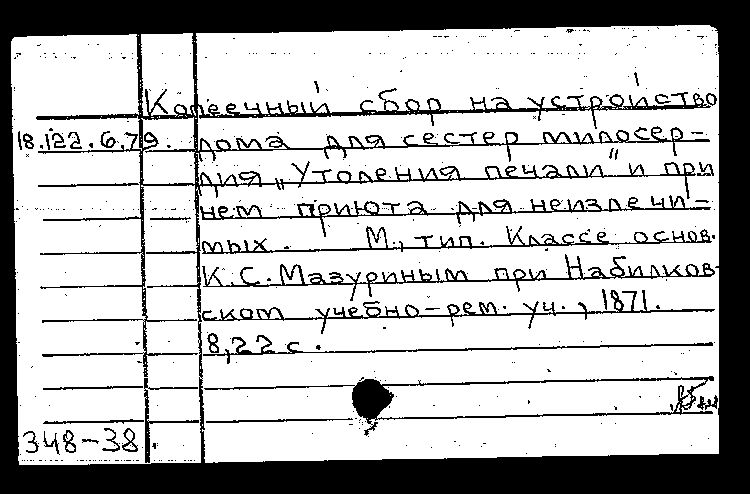 Копеечный сбор на устройство
18.122.6.79. дома для сестер милосер-
дия „Утоления печали" и при
нем приюта для неизлечи-
мых. М., тип. Классе основ.
К.С. Мазуриным при Набилков-
ском учебно-рем. уч., 1871.
8,22 с.
348-38.